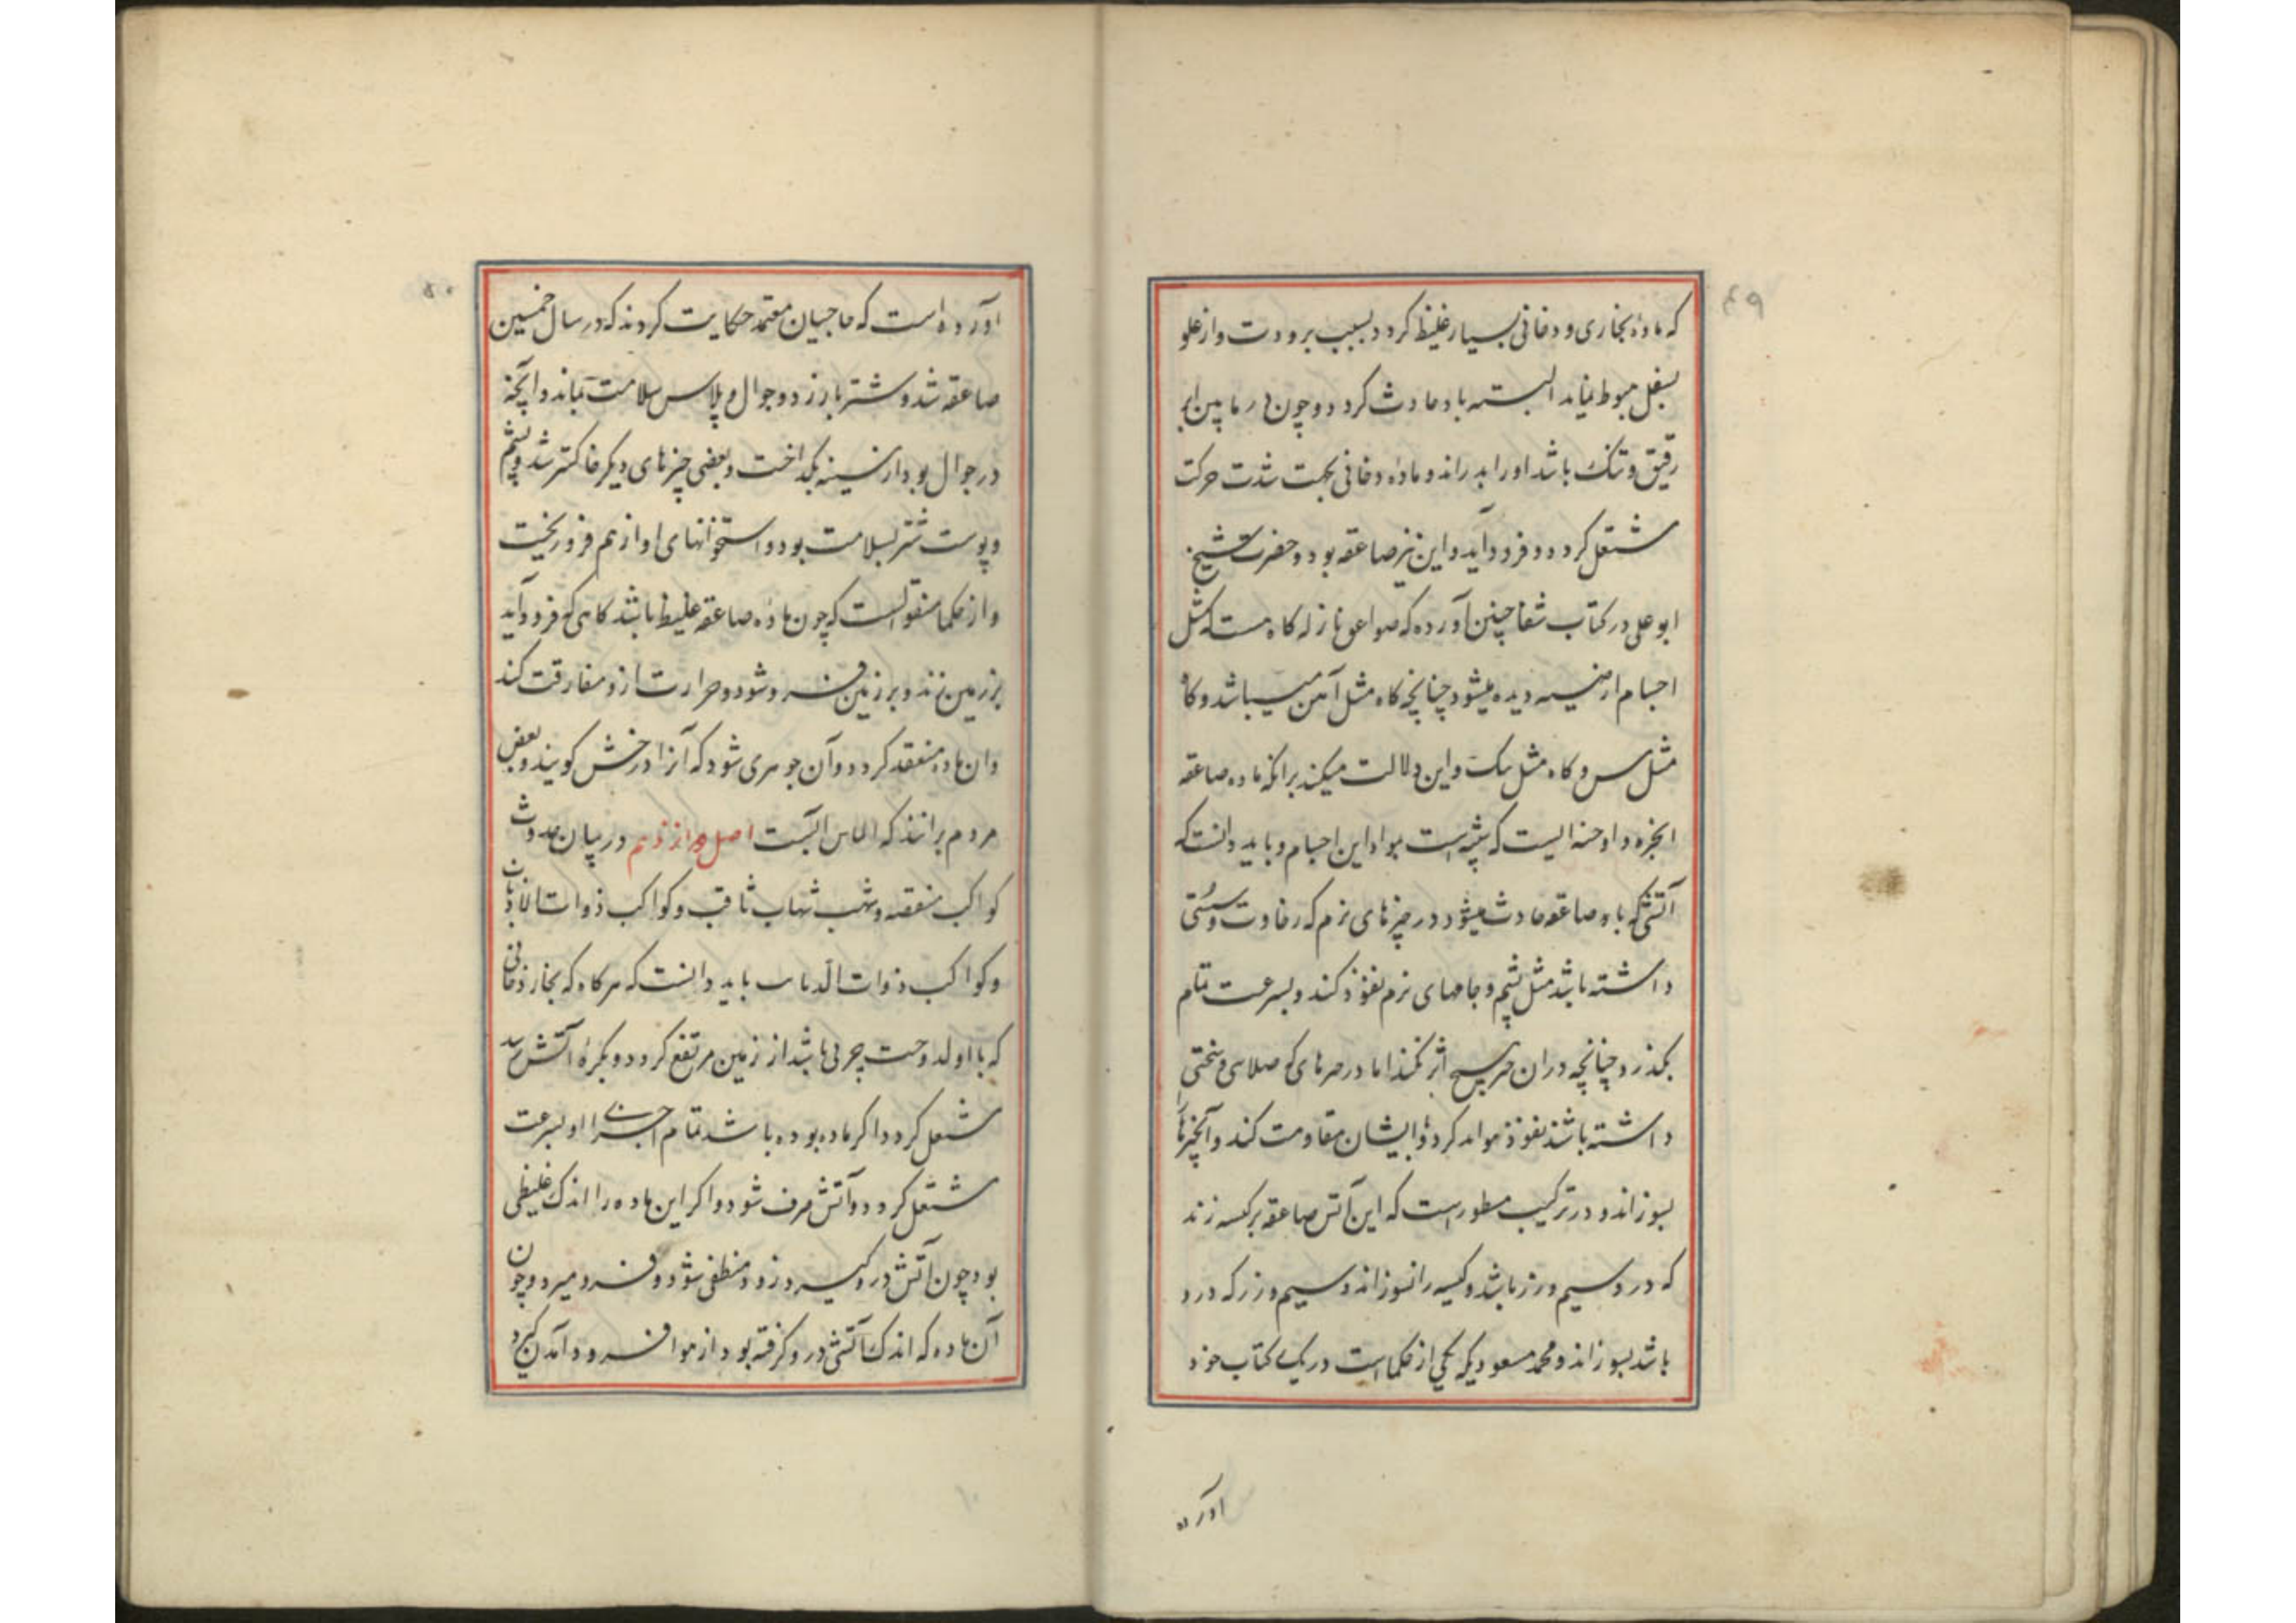 ۴۹
که ماده بخاری و دخانی بسیار غلیظ کردد بسبب برودت و از علو
بسفل هبوط نماید البته باد حادث کردد و چون در ما بین ابر
رقیق و تنک باشد او را بدراند و ماده دخانی بجهت شدت حرکت
مشتعل کردد و فرود آید و این نیز صاعقه بود و حضرت شیخ
ابو علی در کتاب شفا چنین آورده که صواعق نازله کاه هست که مثل
اجسام ارضیه دیده میشود چنانچه کاه مثل آهن میباشد و کاه
مثل مس و کاه مثل سنک و این دلالت میکند برانکه ماده صاعقه
ابخره و ادخنه ایست که شبیه است بمواد این اجسام و باید دانست که
آتشی که باو صاعقه حادث میشود در چیزهای نرم که رخاوت و سستی
داشته باشد مثل پشم و جامهای نرم نفوذ کند و بسرعت تمام
بکذرد چنانچه دران هیچ اثر نکند اما در چیزهای که صلابتی و سختی
داشته باشد نفوذ نتواند کرد و با ایشان مقاومت کند و آنچیزها را
بسوزاند و در ترکیب مسطور است که این آتش صاعقه بر کیسه زند
که در و سیم و زر باشد و کیسه را نسوزاند و سیم و زر که درو
باشد بسوزاند و محمد مسعود یکه یکی از حکما است در یک کتاب خود
آورده
۵۰
آورده است که حاجیان معتمد حکایت کردند که در سال خمسین
صاعقه شد و شتر را بزد و جوال و پلاس سلامت بماند و آنچه
در جوال بود از سینه بکداخت و بعضی چیزهای دیکر خاکستر شد و پشم
و پوست شتر بسلامت بود و استخوانهای او از هم فرو ریخت
و از حکما منقولست که چون ماده صاعقه غلیظ باشد کاهی که فرود آید
بر زمین زند و بر زمین فرو شود و حرارت ازو مفارقت کند
و ان ماده منعقد کردد و آن جوهری شود که آنرا درخش کویند و بعض
مردم برانند که الماس آنست اصل دوازدهم در بیان حدوث
کواکب منقضه و شهب شهاب ثاقب و کواکب ذوات الاذناب
و کواکب ذوات الذباب باید دانست که هر کاه که بخار دخانی
که با او لدوحت چربی باشد از زمین مرتفع کردد و بکره آتش رسد
مشتعل کردد و اکر ماده بوده باشد تمام اجزای او بسرعت
مشتعل کردد و آتش صرف شود و اکر این ماده را اندک غلیظی
بود چون آتش درو کیرد زود منطفی شود و فرو میرد و چون
آن ماده که اندک آتشی درو کرفته بود از هوا فرود آمدن کیرد